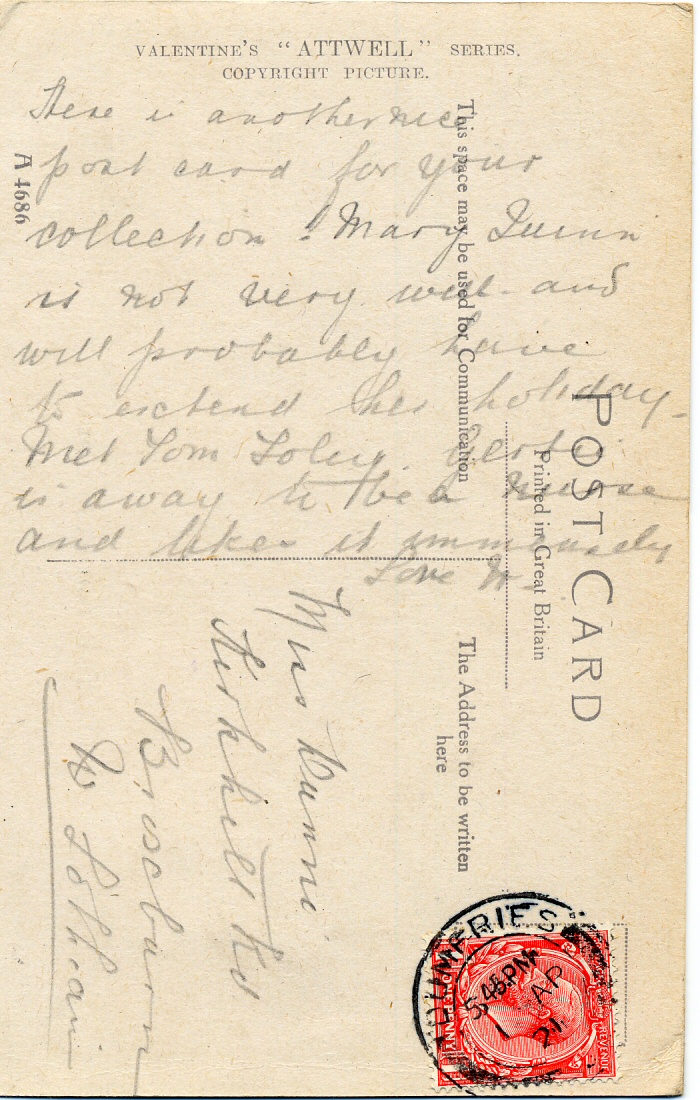 VALENTINE'S "ATTWELL" SERIES.
COPYRIGHT PICTURE.
A 4686
Here is another nice
post card for your
collection! Mary Quinn
is not very well and
will probably have
to extend her holiday.
Met Tom
is away to be a nurse
and likes it immensely
Love
This space may be used for Communication
POST CARD
Printed in Great Britain
The Address to be written
here
Miss
Kirkhill Rd
Broxburn
W Lothian
DUMFRIES
5 45 PM
1 AP
21